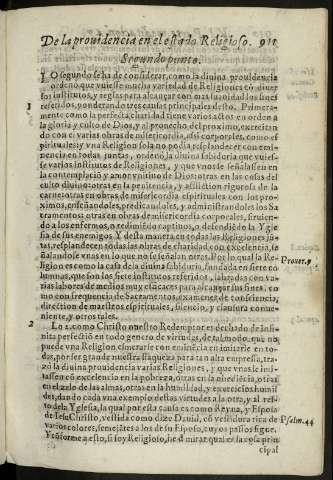 De la providencia en el estado Religioso. 911
Segundo punto.
LO segundo se ha de considerar, como la divina providencia
ordenò que vuiesse mucha variedad de Religiones cõ diuer
sos institutos, y reglas para alcançar con mas suauidad los fines
1 referidos, ponderando tres causas principales desto. Primera-
mente como la perfecta charidad tiene varios actos en orden a
la gloria y culto de Dios, y al prouecho del proximo, exercitan
do con èl varias obras de misericordia, assi corporales, como es
pirituales; y vna Religion sola no podia resplandecer con emi-
nencia en todas juntas, ordenò la diuina sabiduria que vuies-
se varios institutos de Religiones, y que vnos se señalassen en
la contemplaciõ y amor vnitiuo de Dios: otras en las cosas del
culto diuino: otras en la penitencia, y affliccion rigurosa de la
carne: otras en obras de misericordia espirituales con los pro-
ximos, enseñandoles, predicandoles, y administrandoles los Sa
cramentos: otras en obras de misericordia corporales, siruien-
do a los enfermos, o redimiẽdo captiuos, o defendiẽdo la Ygle
sia de sus enemigos. Y desta manera, en todas las Religiones jũ-
tas, resplandecen todas las obras de charidad con excelencia, se
ñalandose vnas en lo que no se señalan otras. Por lo qual la Re-
Prouer. 9
ligion es como la casa de la diuina sabiduria, fundada en siete co
lumnas, que son los siete institutos referidos, labradas con va-
rias labores de medios muy eficaces para alcançar sus fines, co-
mo son frequencia de Sacramentos, examenes de conciencia,
direction de maestros espirituales, silencio, y clausura conue-
niente, y otros tales.
2 Lo 2. como Christo nuestro Redemptor es dechado de infi-
nita perfectiõ en todo genero de virtudes, de tal modo, que no
puede vna Religion esmerarse con eminencia en imitarle en to-
das, por ser grande nuestra flaqueza para tan alta empresa, tra-
zò la diuina prouidencia varias Religiones, y que vnas le imi-
tassen cõ excelencia en la pobreza, otras en la obediẽcia, otras
en el zelo de las almas, otras en la humildad, y exercicios humil
des, dando cada vna exemplo destas virtudes a la otra, y al res-
to de la Yglesia, la qual por esta causa es como Reyna, y Esposa
de Iesu Christo, vestida como dize Dauid, cõ vestidura rica de
Psalm. 44
varios colores, semejãtes a los de su Esposo, cuyos passos sigue.
Y cõforme a esto, si soy Religioso, he d̃ mirar qual es la cosa prin
cipal